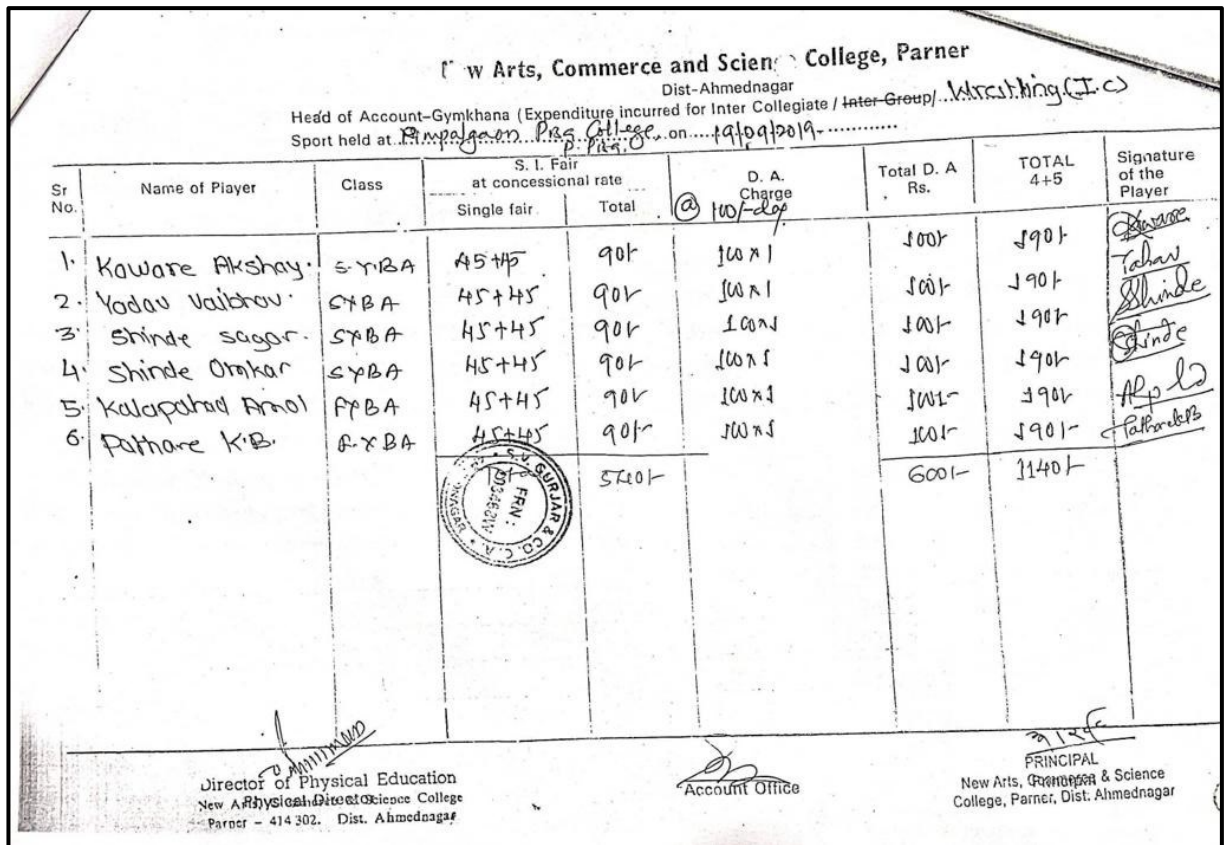 w Arts, Commerce and Scien College, Parner
Dist-Ahmednagar
Head of Account-Gymkhana (Expenditure incurred for Inter Collegiate / Inter Group/ Wrestling (I.C)
Sport held at Pimpalgaon Pisa College on 19/09/2019
Sr No. Name of Player Class S. I. Fair at concessional rate Single fair Total D. A. Charge @ 100/- day Total D. A Rs. TOTAL 4+5 Signature of the Player
1. Kaware Akshay. S.Y.BA 45+45 90/- 100x1 100/- 190/- Kaware
2. Yadav Vaibhav. SYBA 45+45 90/- 100x1 100/- 190/-
3. Shinde Sagar. SYBA 45+45 90/- 100x1 100/- 190/- Shinde
4. Shinde Omkar SYBA 45+45 90/- 100x1 100/- 190/- Shinde
5. Kalapahad Amol FYBA 45+45 90/- 100x1 100/- 190/-
6. Pathare K.B. F.YBA 45+45 90/- 100x1 100/- 190/- PathareKB
540/- 600/- 1140/-
S.V. GURJAR & CO. C.A.
FRN:
Director of Physical Education
Physical Director
New Arts, Commerce & Science College
Parner - 414 302. Dist. Ahmednagar
Account Office
PRINCIPAL
Principal
New Arts, Commerce & Science
College, Parner, Dist. Ahmednagar